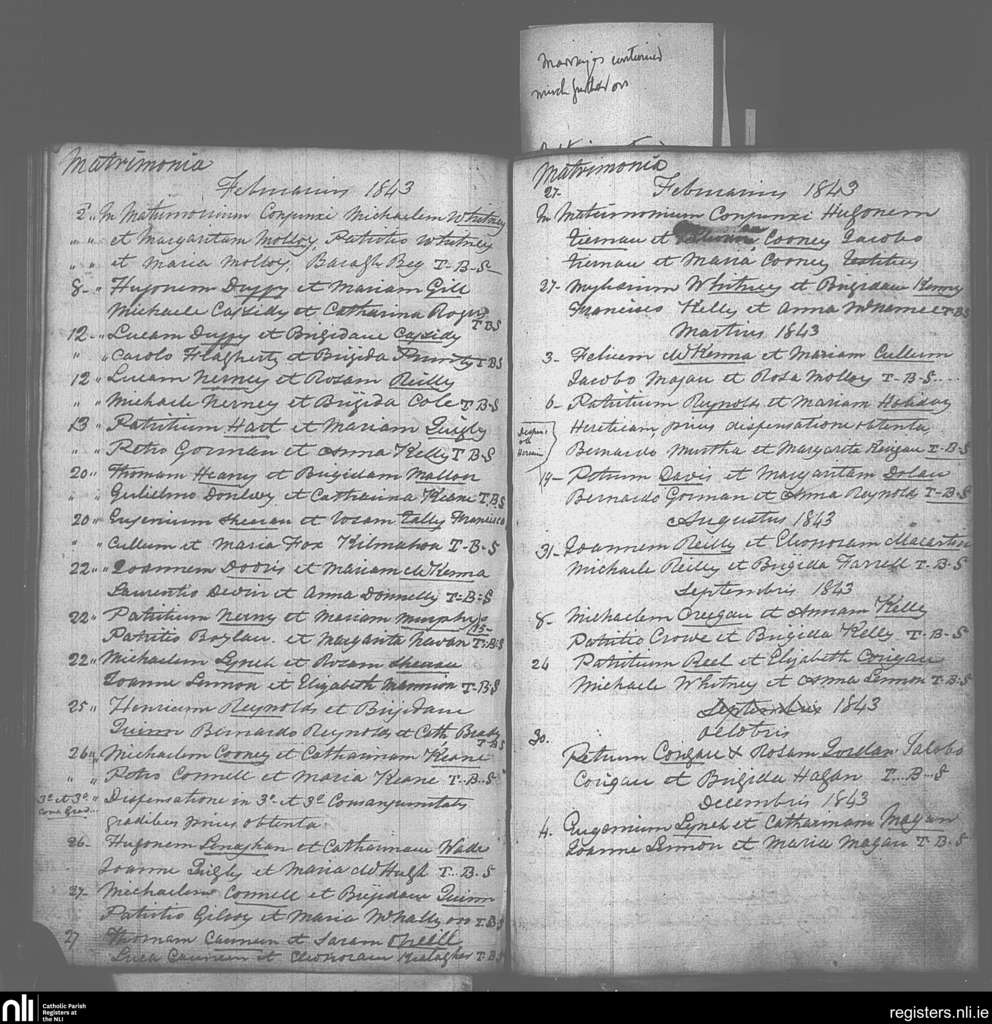 Marriages continued
much further on
Matrimonia
Februarius 1843
2 " In Matrimonium Conjunxi Michaelem Whitney
" " et Margaritam Molloy, Patritio Whitney
" " et Maria Molloy, Baragh Beg T-B-S-
8- " Hugonem Duffy et Mariam Gill
Michaele Cassidy et Catharina Rogers T B S
12- " Lucam Duffy et Brigidam Cassidy
" " Carolo Flagherty et Brigida T B S
12 " Lucam Nerney et Rosam Reilly
" " Michaele Nerney et Brigida Cole T-B-S
13 " Patritium Hart et Mariam Quigly
" " Petro Gorman et Anna Kelly T B S
20 " Thomam Heany et Brigidam Mallon
" " Gulielmo Donlevy et Catharina Keane T.B.S
20 " Eugenium Sheeran et Rosam Lally Francisco
" " Cullum et Maria Fox Kilmahon T-B-S
22 " " Joannem Dooris et Mariam McKenna
Laurentio Devin et Anna Donnelly T-B-S
22 " Patritium Nerny et Mariam Murphy
Patritio Boylan et Margarita Navan T-B-S
22 " Michaelem Lynch et Rosam Sheeran
Joanne Lennon et Elizabeth Mannion T-B-S
25 " Henricum Reynolds et Brigidam
Quinn Bernardo Reynolds et Cath Brady T-B-S
26 " Michaelem Cooney et Catharinam Keane
" " Petro Connell et Maria Keane T-B-S
3º et 3º " Dispensatione in 3º et 3º Consanguinitatis
Cons. Grad... gradibus prius obtenta
26- Hugonem Lenaghan et Catharinam Wade
Joanne Quigly et Maria McHugh T-B-S
27- Michaelem Connell et Brigidam Quinn
Patritio Gilroy et Maria T-B-S
27 Thomam Cannun et Saram Oneill
Luca Cannun et T-B-S
Matrimonia
Februarius 1843
27-
In Matrimonium Conjunxi Hugonem
Tiernan et Cooney Jacobo
Tiernan et Maria Cooney Testibus
27- Whitney et Brigidam Kenny
Francisco Kelly et Anna McNamee T B S
Martius 1843
3- Felicem McKenna et Mariam Cullum
Jacobo Magan et Rosa Molloy T-B-S....
6- Patritium Reynolds et Mariam Holiday
Hereticam, prius dispensatione obtenta
Bernardo Murtha et Margarita Keegan T-B-S
19- Petrum Davis et Margaritam Dolan
Bernardo Gorman et Anna Reynolds T-B-S
Augustus 1843
31- Joannem Reilly et Elionoram
Michaele Reilly et Brigida Farrell T-B-S
Septembris 1843
8- Michaelem Creegan et Annam Kelly
Patritio Crowe et Brigida Kelly T-B-S
24 Patritium Reel et Elizabeth Corigan
Michaele Whitney et Anna Lennon T-B-S
Septembris 1843
Octobris
30.
Petrum Corigan & Rosam Jordan Jacobo
Corigan et Brigida Hagan T-B-S
Decembris 1843
4. Eugenium Lynch et Catharinam Magan
Joanne Lennon et Maria Magan T-B-S
nli
Catholic Parish
Registers at
the NLI
registers.nli.ie